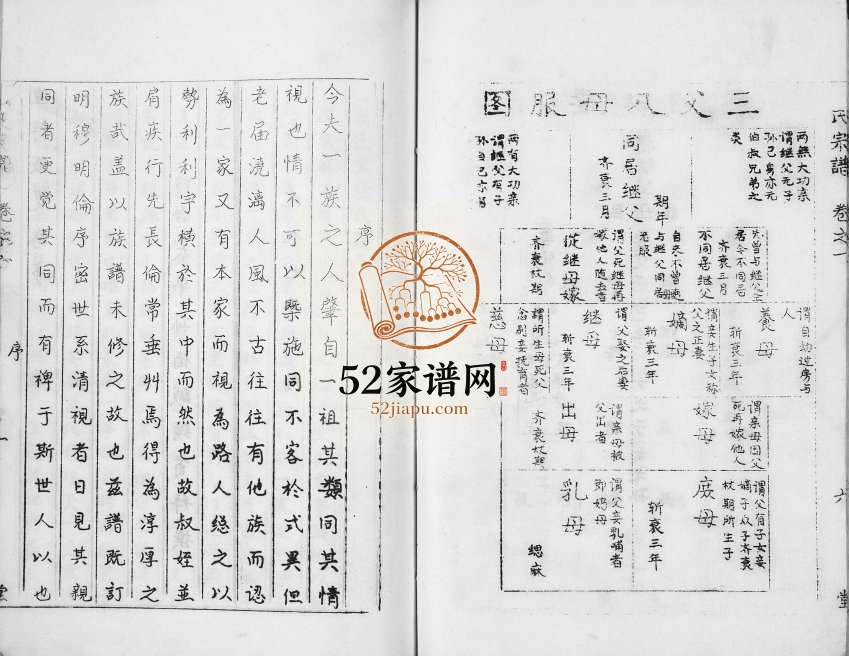 氏宗譜 卷之一
六
堂
三父八母服图
两無大功亲
谓继父无子
孙己身亦元
伯叔兄弟之
类
期年
同居继父
齐衰三月
两有大功亲
谓继父有子
孙自己亦有
先曾与继父
居今不同居
齐衰三月
不同居继父
自来不曾随
与继父同居
无服
谓父死继母再
嫁他人随去者
從继母嫁
齐衰杖期
谓自幼过房与
人
養母
斩衰三年
妾生子女称
父之正妻
嫡母
斩衰三年
谓父娶之后妻
继母
斩衰三年
謂所生母死父
令别妾抚育者
慈母
谓亲母因父
死再嫁他人
嫁母
谓亲母被
父出者
出母
齐衰杖期
谓父有子女妾
嫡子众子齐衰
杖期所生子
庶母
斩衰三年
谓父妾乳哺者
即奶母
乳母
缌麻
序
今夫一族之人肇自一祖其類同其情
視也情不可以槩施同不客於式異但
老届澆漓人風不古往往有他族而認
為一家又有本家而視為路人總之以
勢利利字横於其中而然也故叔姪並
肩疾行先長倫常垂艸焉得為淳厚之
族哉盖以族譜未修之故也兹譜既訂
明穆明倫序密世系清視者日見其親
同者更觉其同而有裨于斯世人以也
序
一
堂
52家谱网
52jiapu.com